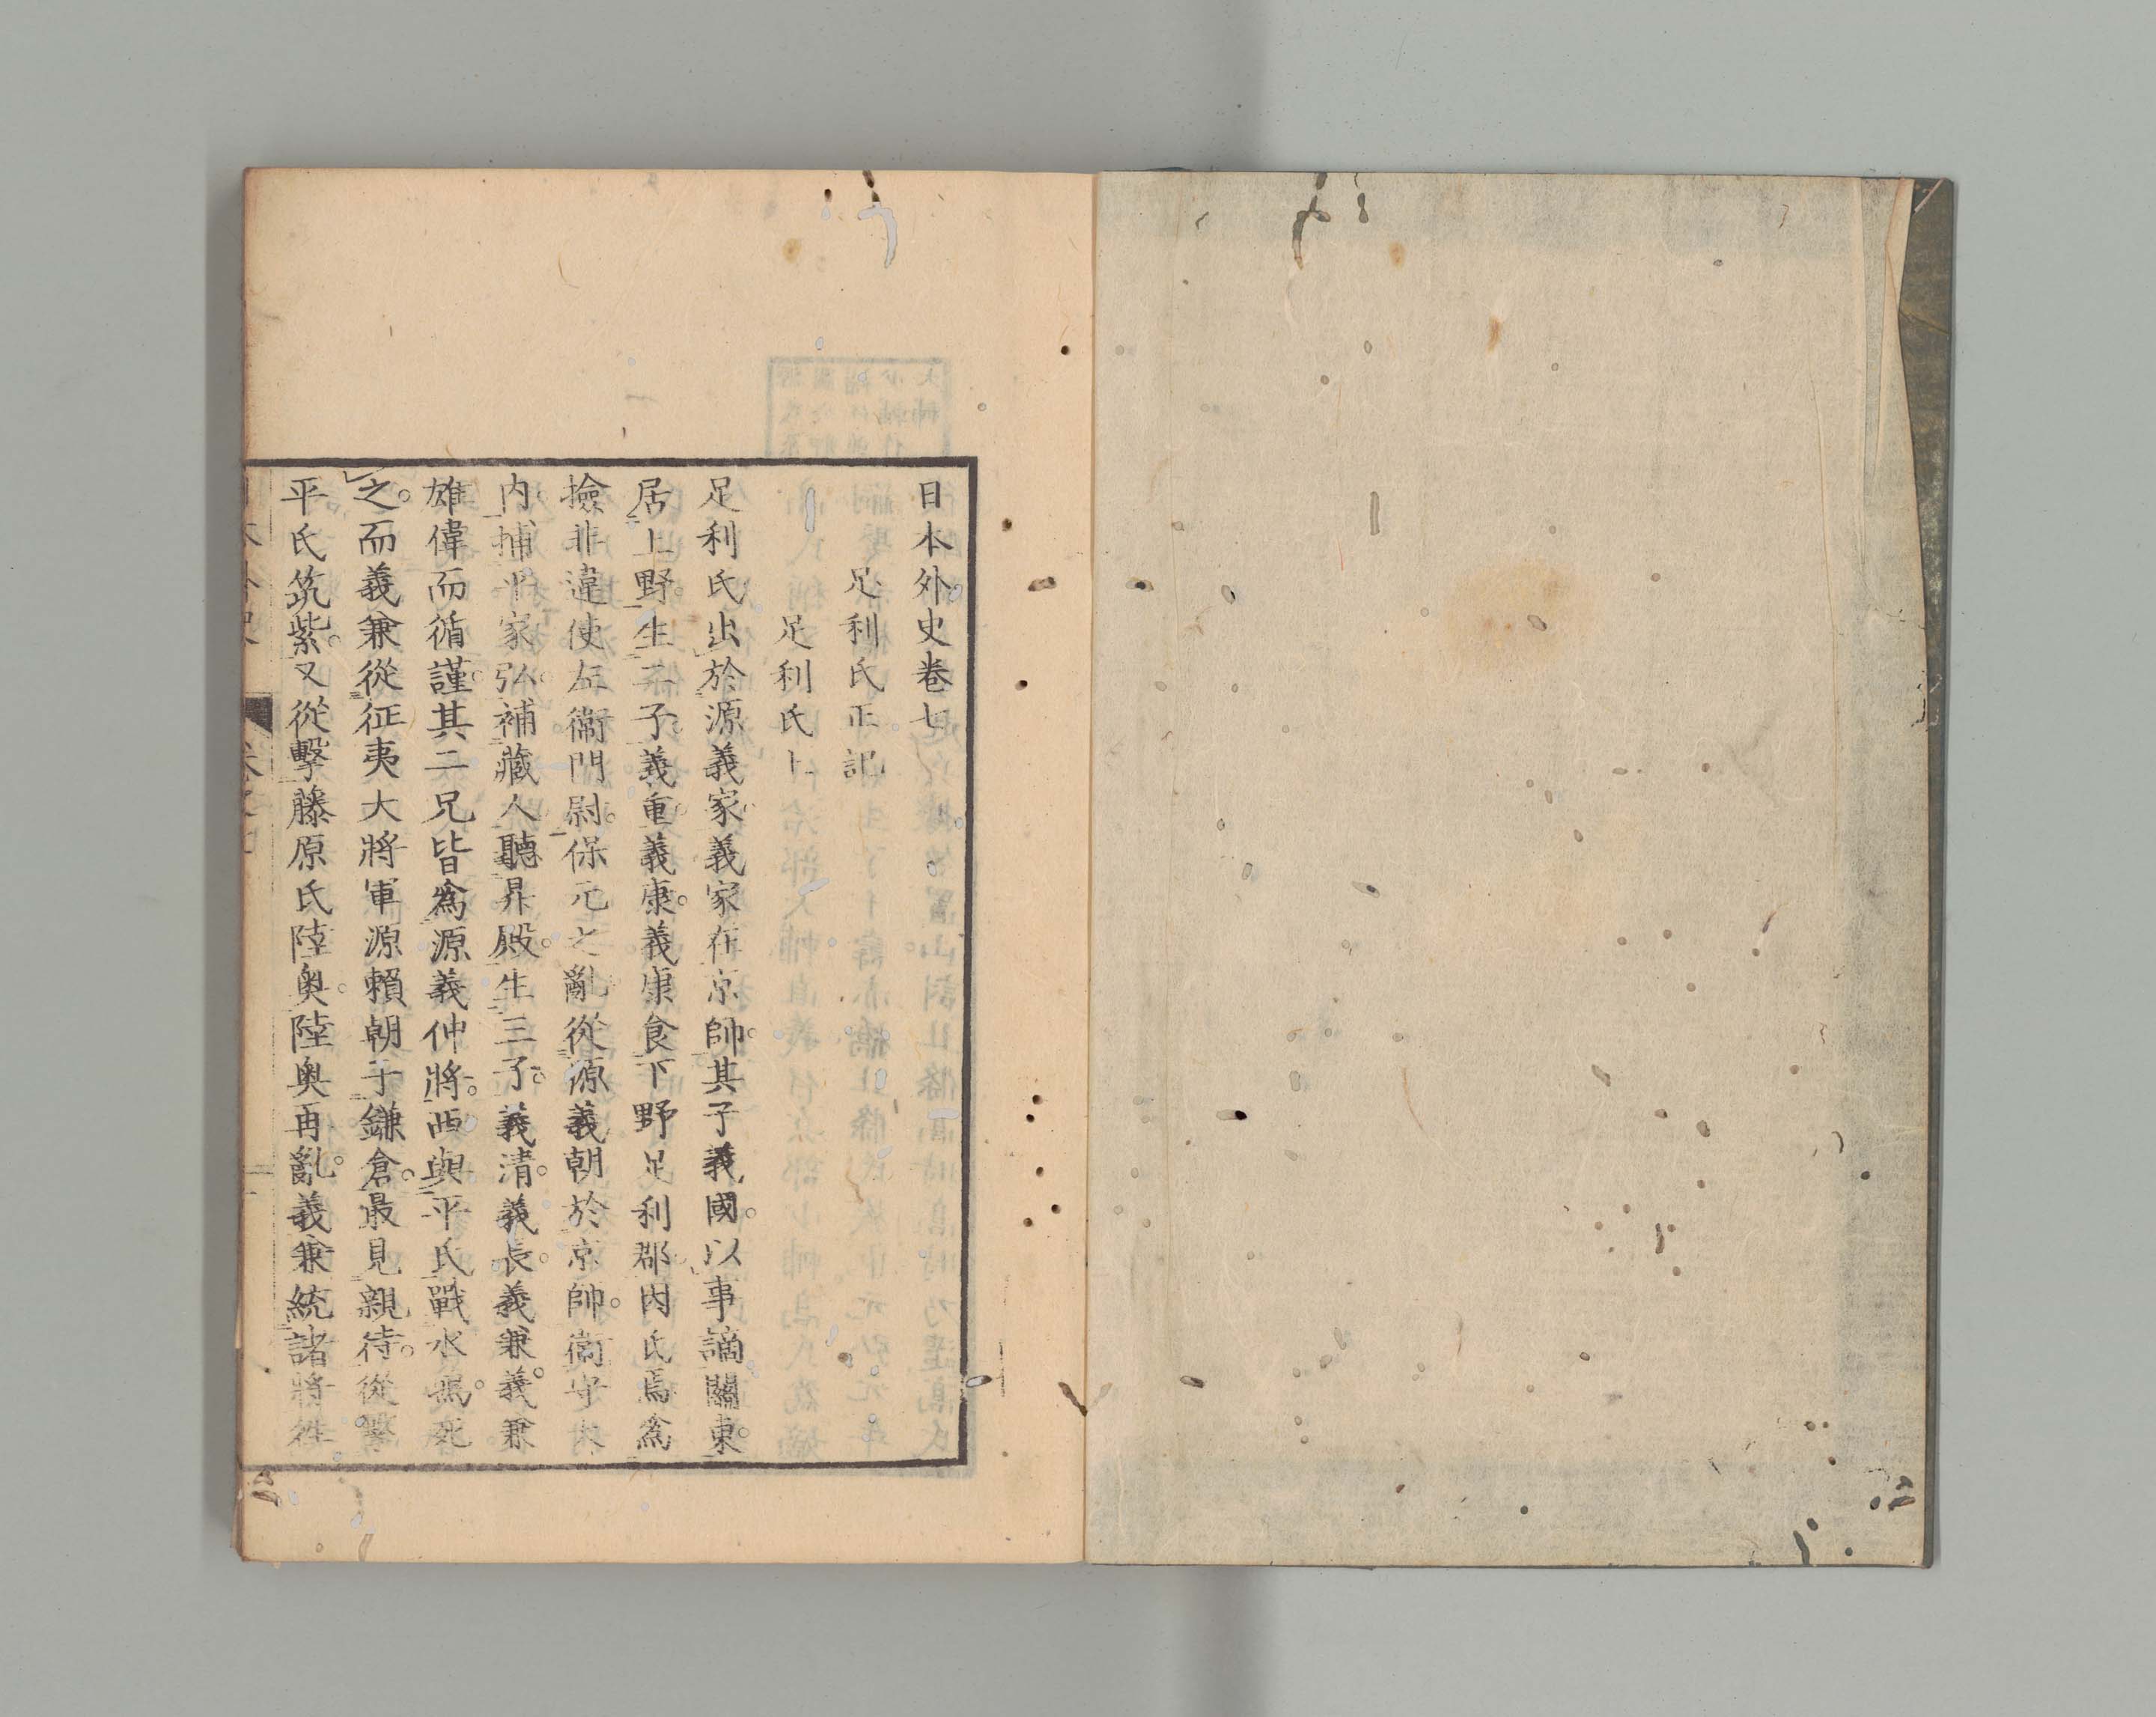 日本外史卷七
足利氏正記
足利氏上
足利氏出於源義家。義家在京師。其子義國。以事謫關東。
居上野。生二子。義重。義康。義康食下野足利郡。因氏焉。爲
撿非違使左衞門尉。保元之亂。從源義朝於京師。衞守大
内。捕平家弘。補藏人聽昇殿。生三子。義清。義長。義兼。義兼
雄偉而循謹。其二兄皆爲源義仲將。西與平氏戰水島。死
之。而義兼從征夷大將軍源賴朝于鎌倉。最見親待。從擊
平氏筑紫。又從擊藤原氏陸奥。陸奥再亂。義兼統諸將往